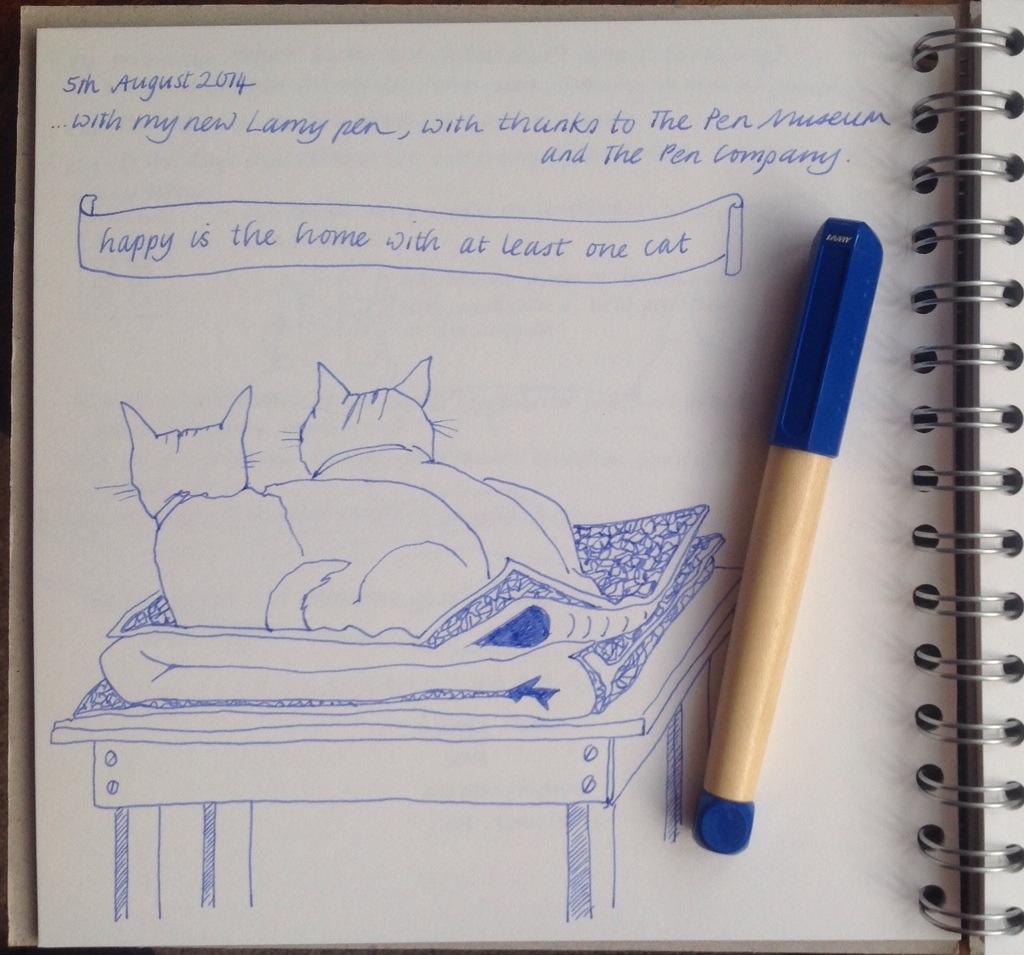 5th August 2014
...with my new Lamy pen, with thanks to The Pen Museum
and The Pen Company.
happy is the home with at least one cat
LAMY